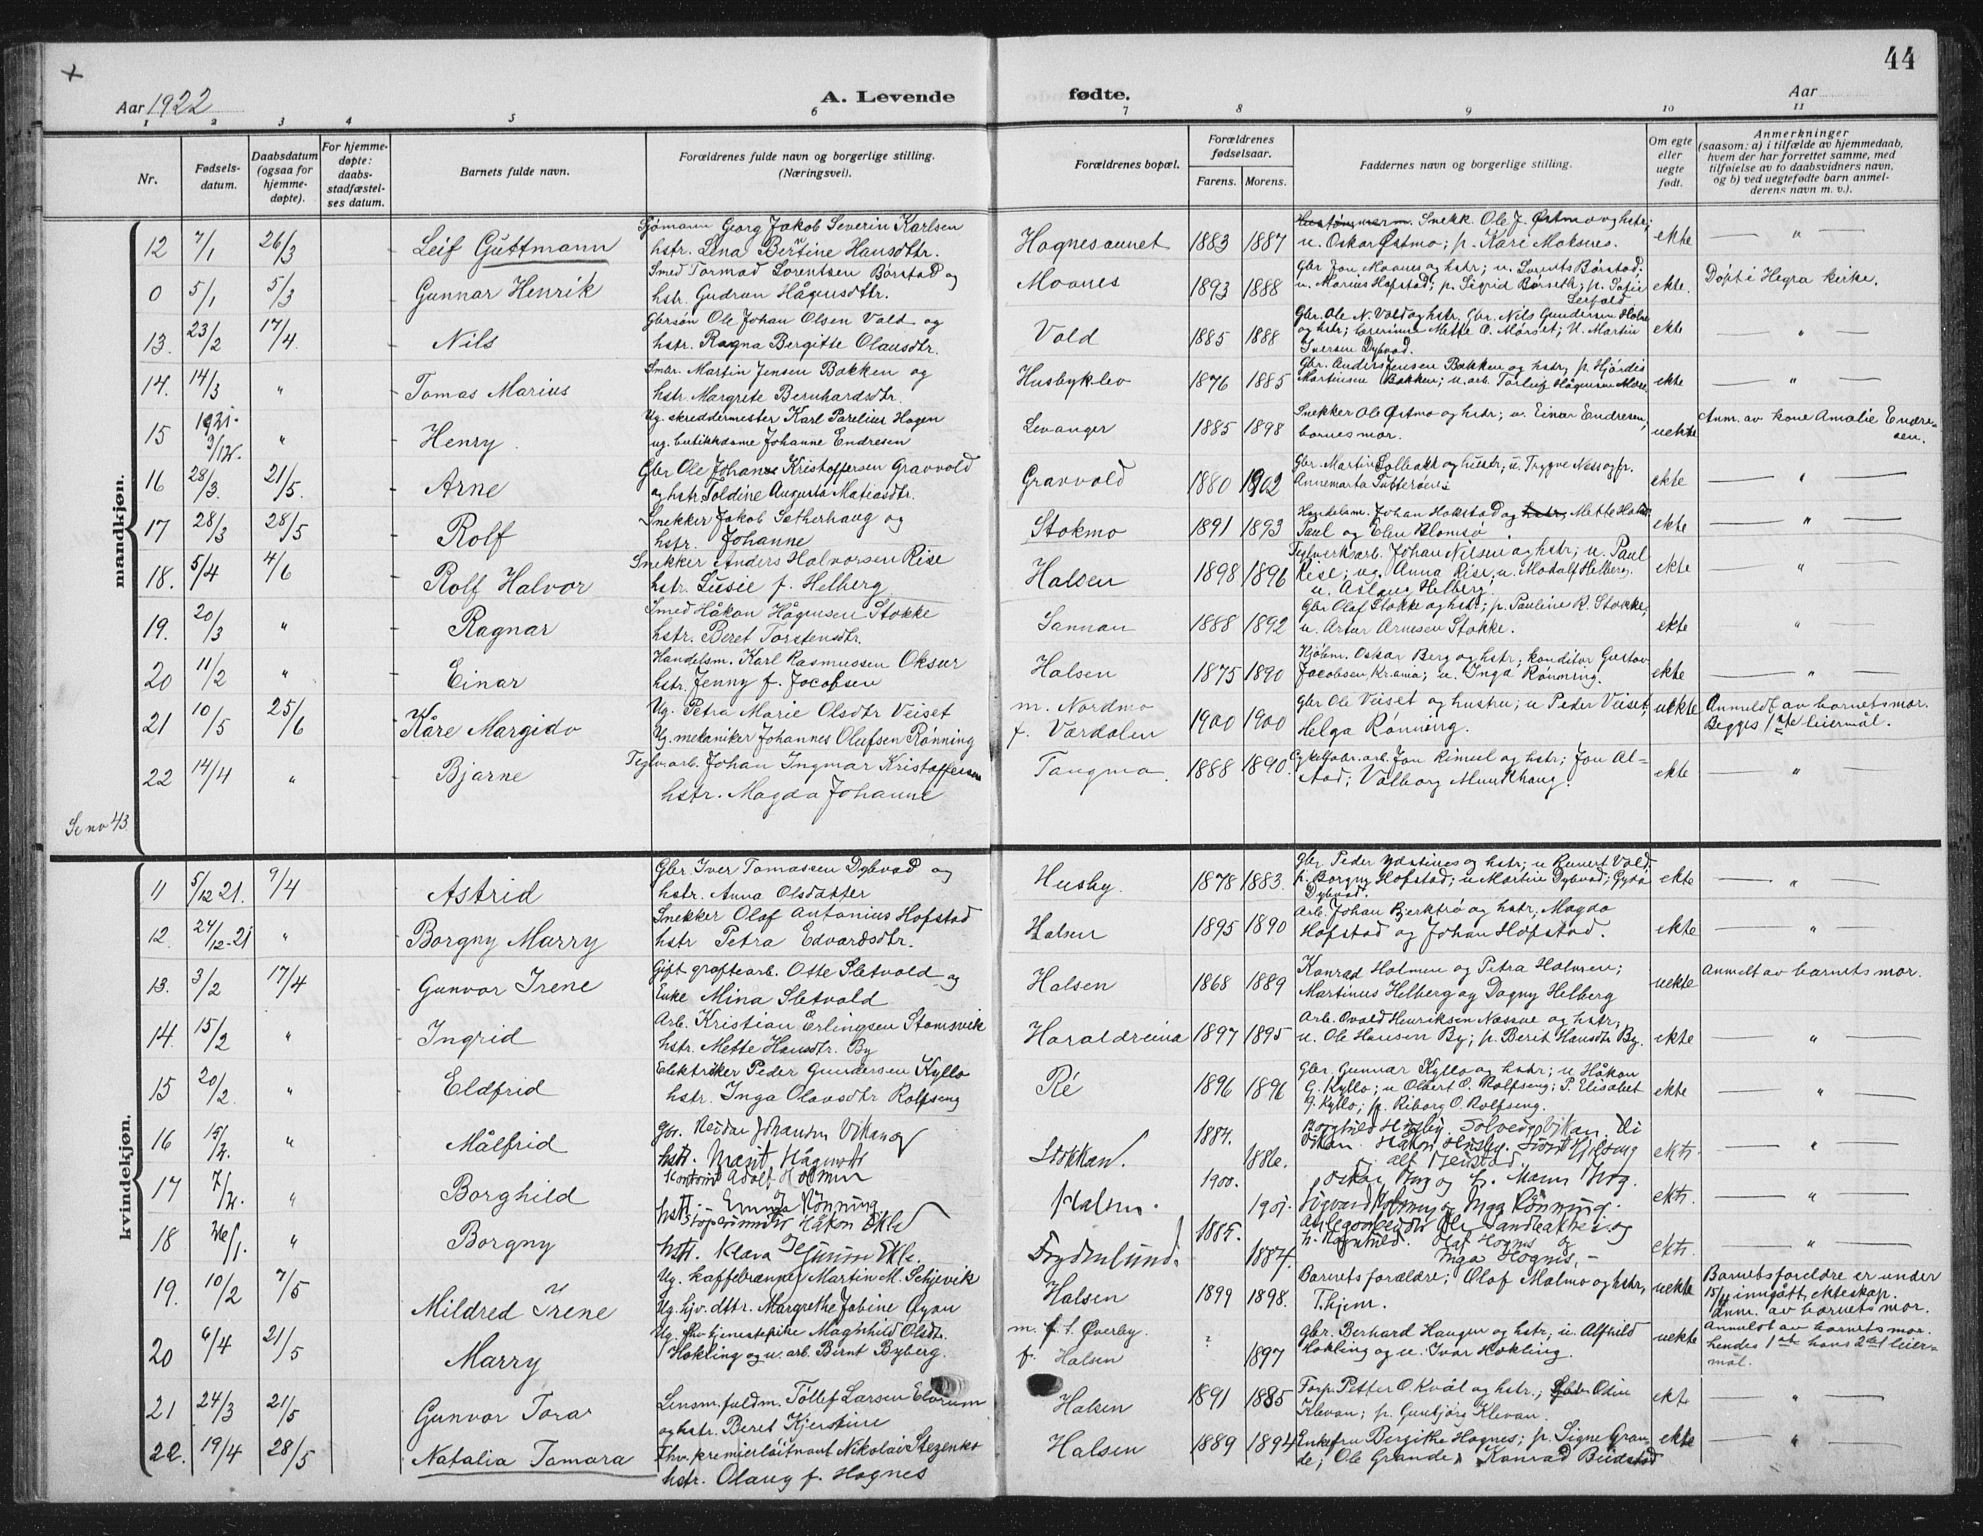 44
Aar 1922
A. Levende fødte.
Aar
1 2 3 4 5 6 7 8 9 10 11
Nr.
Fødsels-
datum.
Daabsdatum
(ogsaa for
hjemme-
døpte).
For hjemme-
døpte:
daabs-
stadfæstel-
ses datum.
Barnets fulde navn.
Forældrenes fulde navn og borgerlige stilling.
(Næringsvei).
Forældrenes bopæl.
Forældrenes
fødselsaar.
Farens. Morens.
Faddernes navn og borgerlige stilling.
Om egte
eller
uegte
født.
Anmerkninger
(saasom: a) i tilfælde av hjemmedaab,
hvem der har forrettet samme, med
tilføielse av to daabsvidners navn,
og b) ved uegtefødte barn anmel-
derens navn m. v.).
mandkjøn.
12 7/1 26/3 Leif Guttmann
Sjømann Georg Jakob Severin Karlsen
hstr. Lena Birtine Hansdtr.
Hognesaunet 1883 1887
Snekk. Ole J. Østmo og hstr;
u. Oskar Østmo; p. Kare Moksnes.
ekte — " —
0 5/1 5/3 Gunnar Henrik
Smed Tormod Lorentsen Børstad og
hstr. Gudrun Hågensdtr.
Moanes 1893 1888
Gbr Jon Moanes og hstr; u. Lorents Børstad;
u. Marius Hofstad; p. Sigrid Børseth; p. Sofie
ekte. Døpt i Hegra kirke.
13. 23/2 17/4. Nils
Gbrsøn Ole Johan Olsen Vold og
hstr. Ragna Bergitte Olausdtr.
Vold 1885 1888
Gbr. Ole N. Vold og hstr. Gbr. Nils Gundersen Holm
og hstr; Mette O. Mørset; U. Martin
Iversen Dybvad.
ekte — " —
14. 14/3 " Tomas Marius
Smbr. Martin Jensen Bakken og
hstr. Margrete Bernhardsdtr.
Husbyklev 1876 1885
Gbr. Anders Jensen Bakken og hstr, p. Hjørdis
Martinsen Bakken; u. arb. Torleif Hågensen Moe.
ekte — " —
15 1921- 3/12. " Henry.
Ug. skreddermester Karl Parelius Hagen
ug. butikkdame Johanne Endresen
Levanger 1885 1898
Snekker Ole Østmo og hstr; u. Einar Endresen,
barnes mor.
uekte Anm. av kone Amalie Endre-
sen.
16 28/3. 21/5. Arne
Gbr Ole Johan Kristoffersen Gravvold
og hstr Toldine Augusta Matiasdtr.
Gravvold 1880 1902
Gbr. Martin Solbakk og hustr; u. Trygve Ness og p.
Annemarta Sutterönes
ekte — " —
17 28/3 28/5 Rolf
Snekker Jakob Sætherhaug og
hstr. Johanne
Stokmo 1891 1893
Handelsm. Johan Hokstad og hstr, Mette Holm
Paul og Elen Blomsö
ekte — " —
18. 5/4 4/6 Rolf Halvor
Snekker Anders Halvorsen Rise
hstr. Lusie f. Helberg
Halsen 1898 1896
Teglverksarb. Johan Nilsen og hstr; u. Paul
Rise; ug. Anna Rise, u. Modulf Helberg.
u. Aslaug Helberg.
ekte — " —
19. 20/3 " Ragnar
Smed Håkon Hågensen Stokke
hstr. Beret Torstensdtr.
Sannan 1888 1892
Gbr Olaf Stokke og hstr; p. Pauline R. Stokke;
u. Artur Arnesen Stokke.
ekte " —
20 11/2 " Einar
Handelsm. Karl Rasmussen Oksur
hstr. Jenny f. Jacobsen
Halsen 1875 1890
Kjøbm. Oskar Berg og hstr; konditor Gustav
Jacobsen, Kr.ania; u. Inga Rønning.
ekte — " —
21 10/5 25/6 Kåre Margido
Ug. Petra Marie Olsdtr Veiset
Ug. mekaniker Johannes Olufsen Rønning
m. Nordmo
f. Værdalen 1900 1900
Gbr Ole Veiset og hustru; u Peder Veiset;
Helga Rønning.
uekte Anmeldt av barnets mor.
Begges 1ste leiermål.
22 14/4 " Bjarne
Teglv.arb. Johan Ingmar Kristoffersen
hstr. Magda Johanne
Tangmo. 1888 1890.
Cykelfabr.arb. Jon Rimul og hstr; Jon Al-
stad; Valborg Mundthaug.
ekte — " —
Se no 43
kvindekjøn.
11 5/12 21. 9/4 Astrid
Gbr. Iver Tomassen Dybvad og
hstr. Anna Olsdatter
Husby. 1878 1883.
Gbr Peder Ydstines og hstr; u Vold;
p. Borgny Hofstad; u Martin Dybvad; Gyda
Dybvad.
ekte — " —
12. 24/12-21 " Borgny Marry
Snekker Olaf Antonius Hofstad
hstr Petra Edvardsdtr.
Halsen 1895 1890
Arb. Johan Bjerktrö og hstr, Magda
Hofstad og Johan Hofstad.
ekte — " —
13. 3/2 17/4 Gunvor Irene
Gift grøftearb. Otte Sletvold og
Enke Mina Sletvold
Halsen 1868 1889
Konrad Holmen og Petra Holmen;
Martinus Helberg og Dagny Helberg
uekte Anmelt av barnets mor.
14. 15/2 " Ingrid
Arb. Kristian Erlingsen Stamsvik
hstr. Mette Hansdtr. By
Haraldreina 1897 1895
Arb. Ovald Henriksen Næsvue og hstr;
u. Ole Hansen By; p. Berit Hansdtr By.
ekte — " —
15 20/2. " Eldfrid
Elektriker Peder Gundersen Kyllo
hstr. Inga Olavsdtr Rolfseng
Ré 1896 1896
Gbr. Gunnar Kyllo og hstr; u Håkon
G. Kyllo; u Olbert O. Rolfseng; P. Elisabet
G. Kyllo; p. Riborg O. Rolfseng.
ekte "
16 " Målfrid
Gbr. Reidar Johansen Vikan og
hstr. Marit Hågensdtr
Stokkan. 1884. 1886.
Borghild Husby. Solveig Vikan.
Vikan. Håkon Husby.
ekte "
17 " Borghild
Adolf Holmen
hstr. Emma Rønning
Halsen. 1900. 1901.
Oskar Krog og p. Marie Krog.
Sigvard Holmen og Inga Rønning.
ekte "
18 26/1. " Borgny
Håkon Ekle
hstr. Klara Ekle.
Frydenlund. 1885. 1884.
Anlegsarbeider Ole Sandbakken og
h. Ragnhild. Olaf Hognes og
Inga Hognes.
ekte "
19. 10/2 7/5 Mildred Irene
Ug. kaffebrænner Martin M. Schjevik
Ug. hjv. dttr. Margrethe Jobine Øyan
Halsen 1899 1898.
Barnets forældre; Olaf Malmo og hstr,
T.hjem.
uekte Barnets foreldre er under
15/4 inngått ekteskap.
Anm. av barnets mor.
20 6/4 21/5 Marry
Ug. fhv tjenestepike Magnhild Olsdtr.
Hokling og u. arb. Bernt Byberg.
m. f. t. Øverby.
f. Halsen ? 1897
Gbr. Berhard Haugen og hstr; u. Alfhild
Hokling og u. Ivar Hokling.
uekte Anmeldt av barnets mor.
hendes 1ste hans 2det leier-
mål.
21 24/3 21/5 Gunvor Tora
Lensm. fuldm. Tøllef Larsen Elvrum
og hstr. Beret Kjerstine
Halsen 1891 1885
Forp. Petter O. Kvål og hstr.; Gbr. Odin
Klevan; p. Gunbjörg Klevan.
ekt — " —
22. 19/4 28/5 Natalia Tamara
Fhv. premierløitnant Nikolai Stezenko
hstr. Olaug f. Hognes
Halsen 1889 1894
Enkefru Bergithe Hognes; p. Signe Gran-
de; Ole Grande, Konrad Budstad
ekte — " —